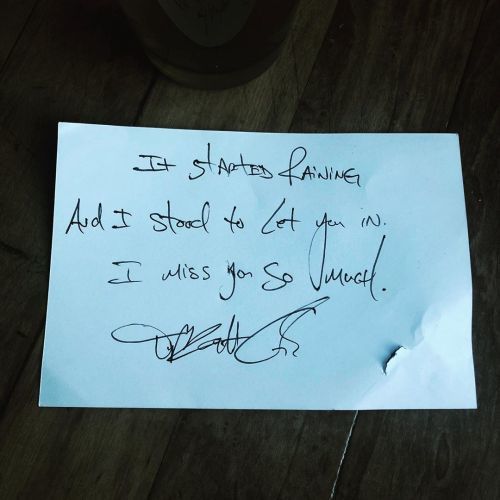 It started Raining
And I stood to Let you in.
I miss you so much.